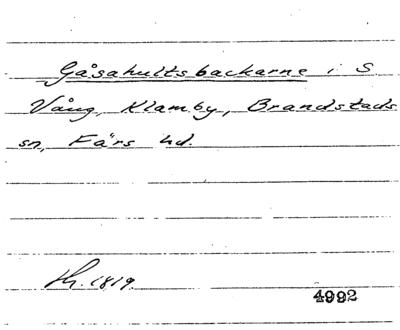 Gåsahultsbackarne i S
Vång, Klamby, Brandstads
sn, Färs hd.
1819.
4992